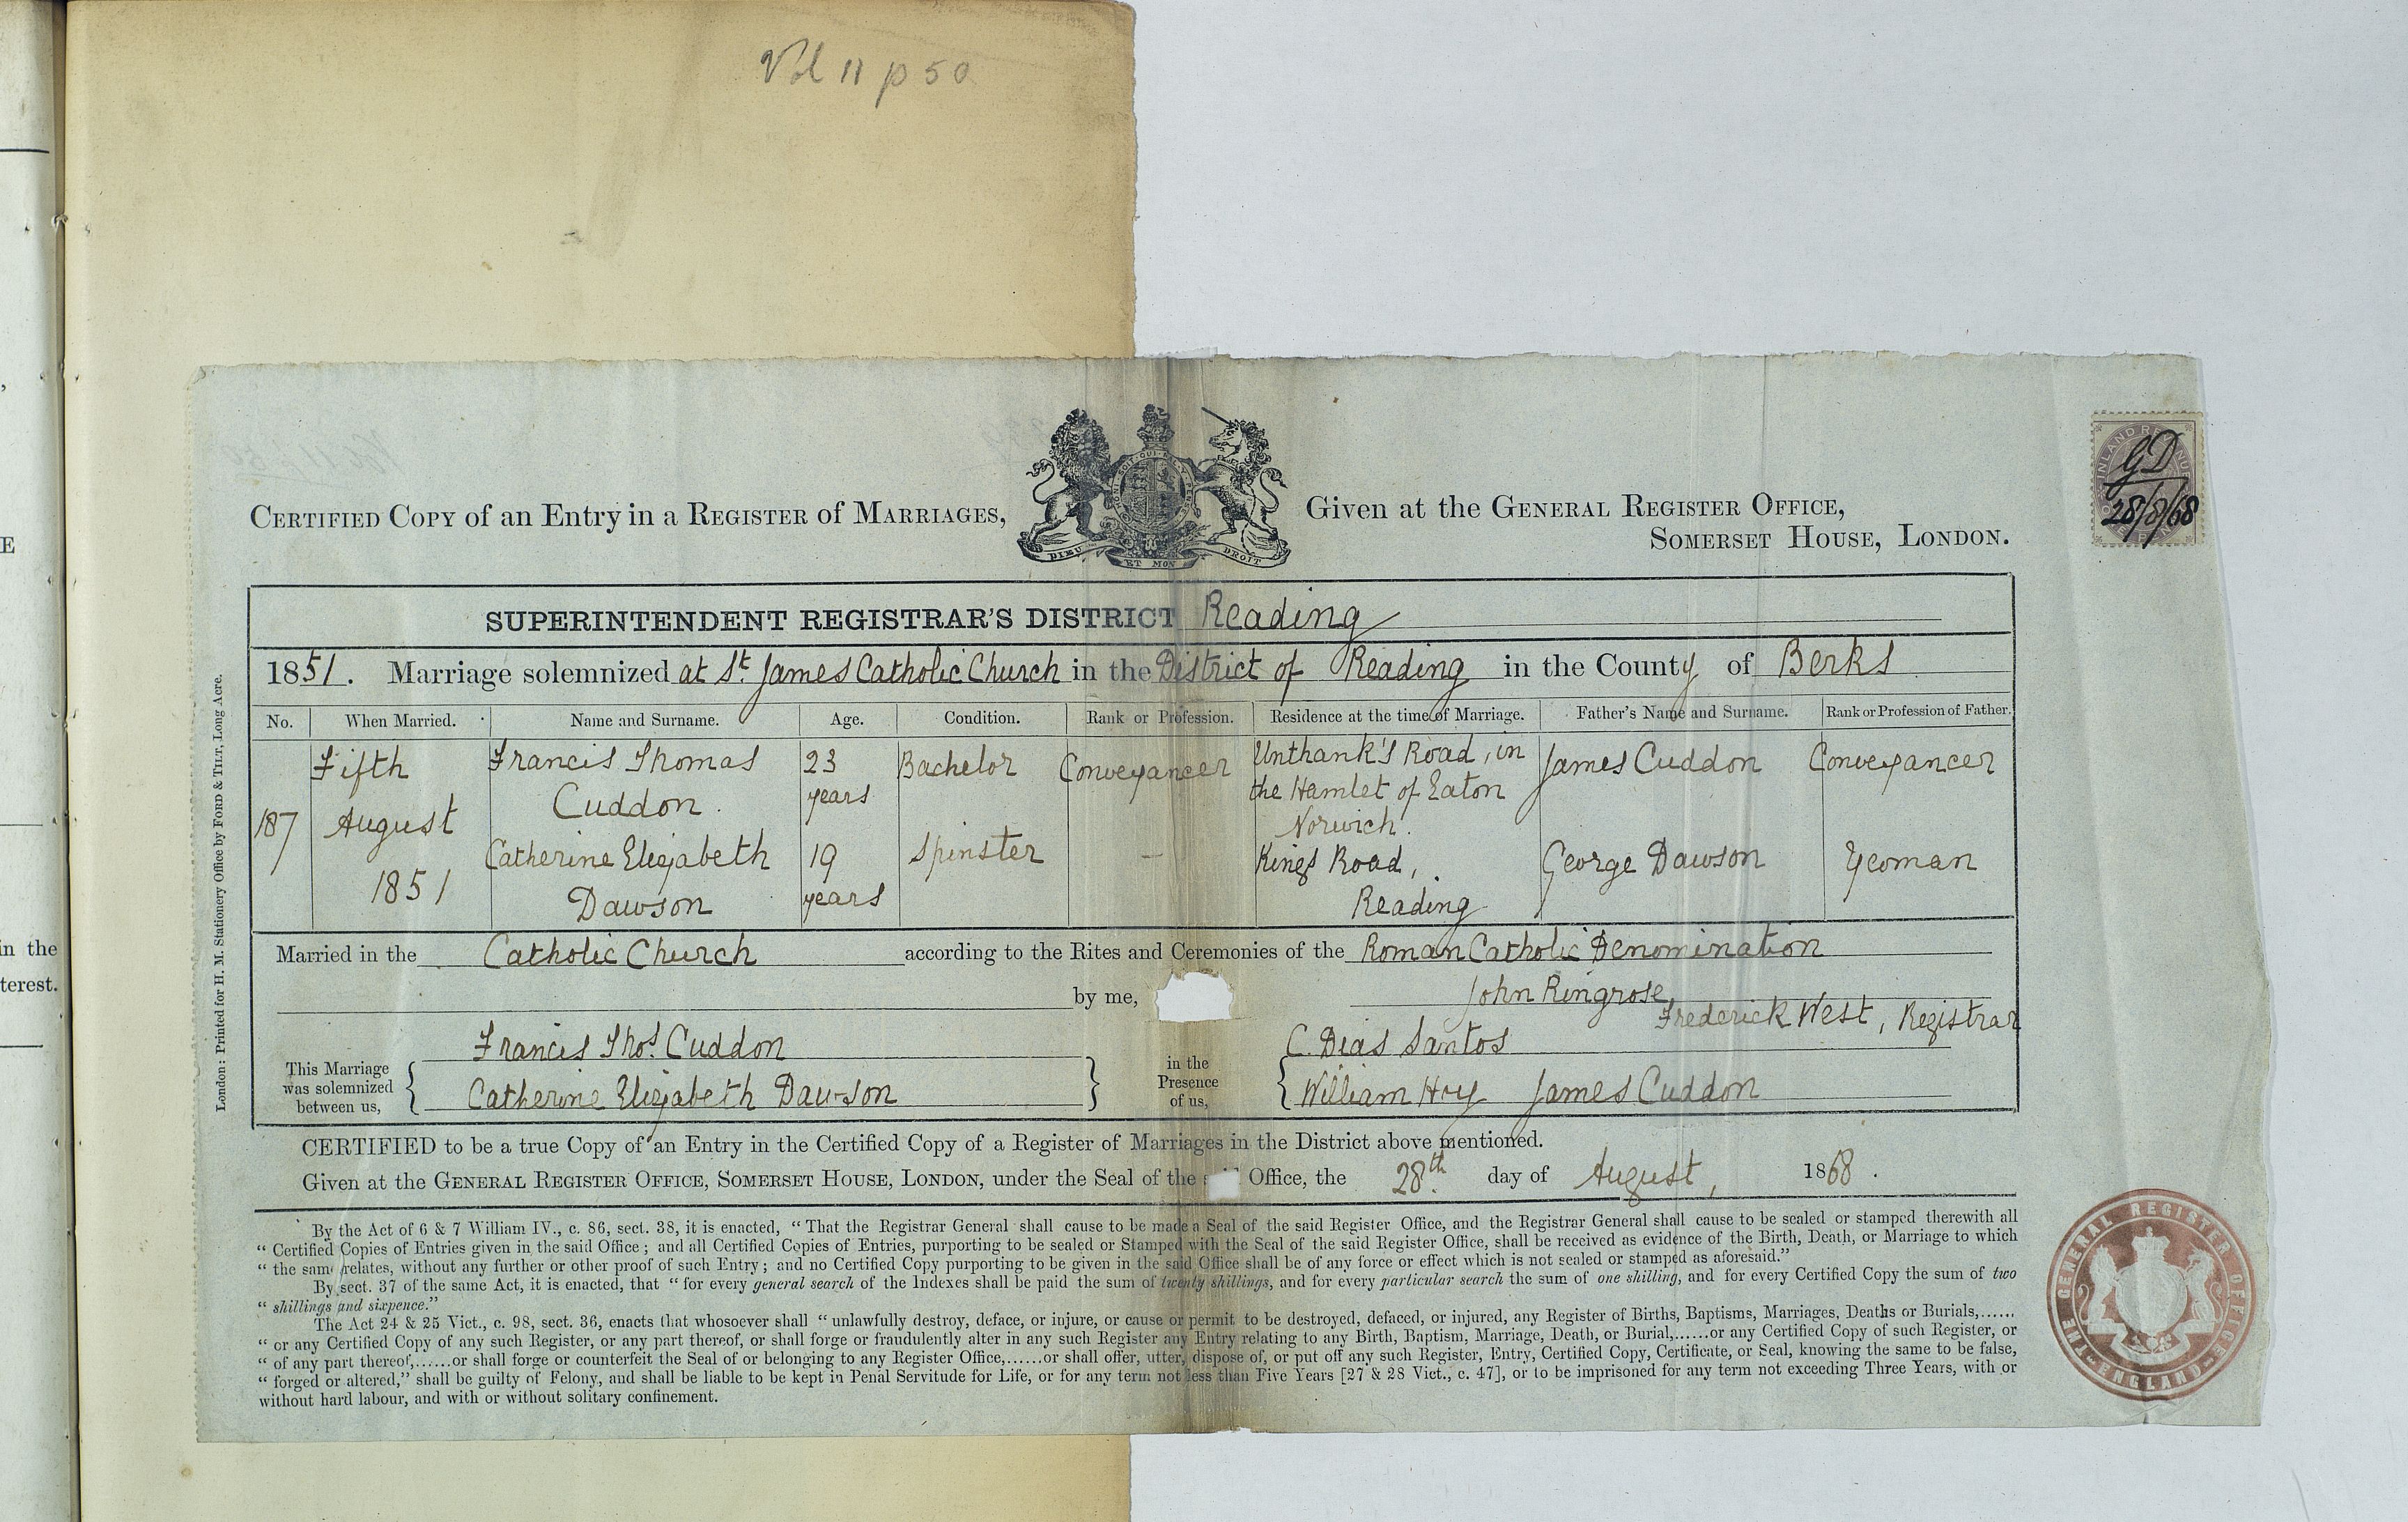 Vol 11 p 50
E
in the
terest.
CERTIFIED COPY of an Entry in a REGISTER of MARRIAGES,
Given at the GENERAL REGISTER OFFICE,
SOMERSET HOUSE, LONDON.
DIEU ET MON DROIT
INLAND REVENUE
GD
28/8/68
London: Printed for H. M. Stationery Office by FORD & TILT, Long Acre.
SUPERINTENDENT REGISTRAR'S DISTRICT Reading
1851. Marriage solemnized at St. James Catholic Church in the District of Reading in the County of Berks
No. When Married. Name and Surname. Age. Condition. Rank or Profession. Residence at the time of Marriage. Father's Name and Surname. Rank or Profession of Father.
187 Fifth August 1851
Francis Thomas Cuddon. 23 years Bachelor Conveyancer Unthank's Road, in the Hamlet of Eaton Norwich. James Cuddon Conveyancer
Catherine Elizabeth Dawson 19 years Spinster — Kings Road, Reading George Dawson Yeoman
Married in the Catholic Church according to the Rites and Ceremonies of the Roman Catholic Denomination
by me, John Ringrose,
Frederick West, Registrar
This Marriage was solemnized between us, Francis Thos. Cuddon Catherine Elizabeth Dawson
in the Presence of us, C. Dias Santos William Hoy James Cuddon
CERTIFIED to be a true Copy of an Entry in the Certified Copy of a Register of Marriages in the District above mentioned.
Given at the GENERAL REGISTER OFFICE, SOMERSET HOUSE, LONDON, under the Seal of the Office, the 28th. day of August, 1868.
By the Act of 6 & 7 William IV., c. 86, sect. 38, it is enacted, "That the Registrar General shall cause to be made a Seal of the said Register Office, and the Registrar General shall cause to be sealed or stamped therewith all
"Certified Copies of Entries given in the said Office; and all Certified Copies of Entries, purporting to be sealed or Stamped with the Seal of the said Register Office, shall be received as evidence of the Birth, Death, or Marriage to which
"the same relates, without any further or other proof of such Entry; and no Certified Copy purporting to be given in the said Office shall be of any force or effect which is not sealed or stamped as aforesaid."
By sect. 37 of the same Act, it is enacted, that "for every general search of the Indexes shall be paid the sum of twenty shillings, and for every particular search the sum of one shilling, and for every Certified Copy the sum of two
"shillings and sixpence."
The Act 24 & 25 Vict., c. 98, sect. 36, enacts that whosoever shall "unlawfully destroy, deface, or injure, or cause or permit to be destroyed, defaced, or injured, any Register of Births, Baptisms, Marriages, Deaths or Burials,......
"or any Certified Copy of any such Register, or any part thereof, or shall forge or fraudulently alter in any such Register any Entry relating to any Birth, Baptism, Marriage, Death, or Burial,......or any Certified Copy of such Register, or
"of any part thereof,......or shall forge or counterfeit the Seal of or belonging to any Register Office,......or shall offer, utter, dispose of, or put off any such Register, Entry, Certified Copy, Certificate, or Seal, knowing the same to be false,
"forged or altered," shall be guilty of Felony, and shall be liable to be kept in Penal Servitude for Life, or for any term not less than Five Years [27 & 28 Vict., c. 47], or to be imprisoned for any term not exceeding Three Years, with or
without hard labour, and with or without solitary confinement.
THE GENERAL REGISTER OFFICE ENGLAND